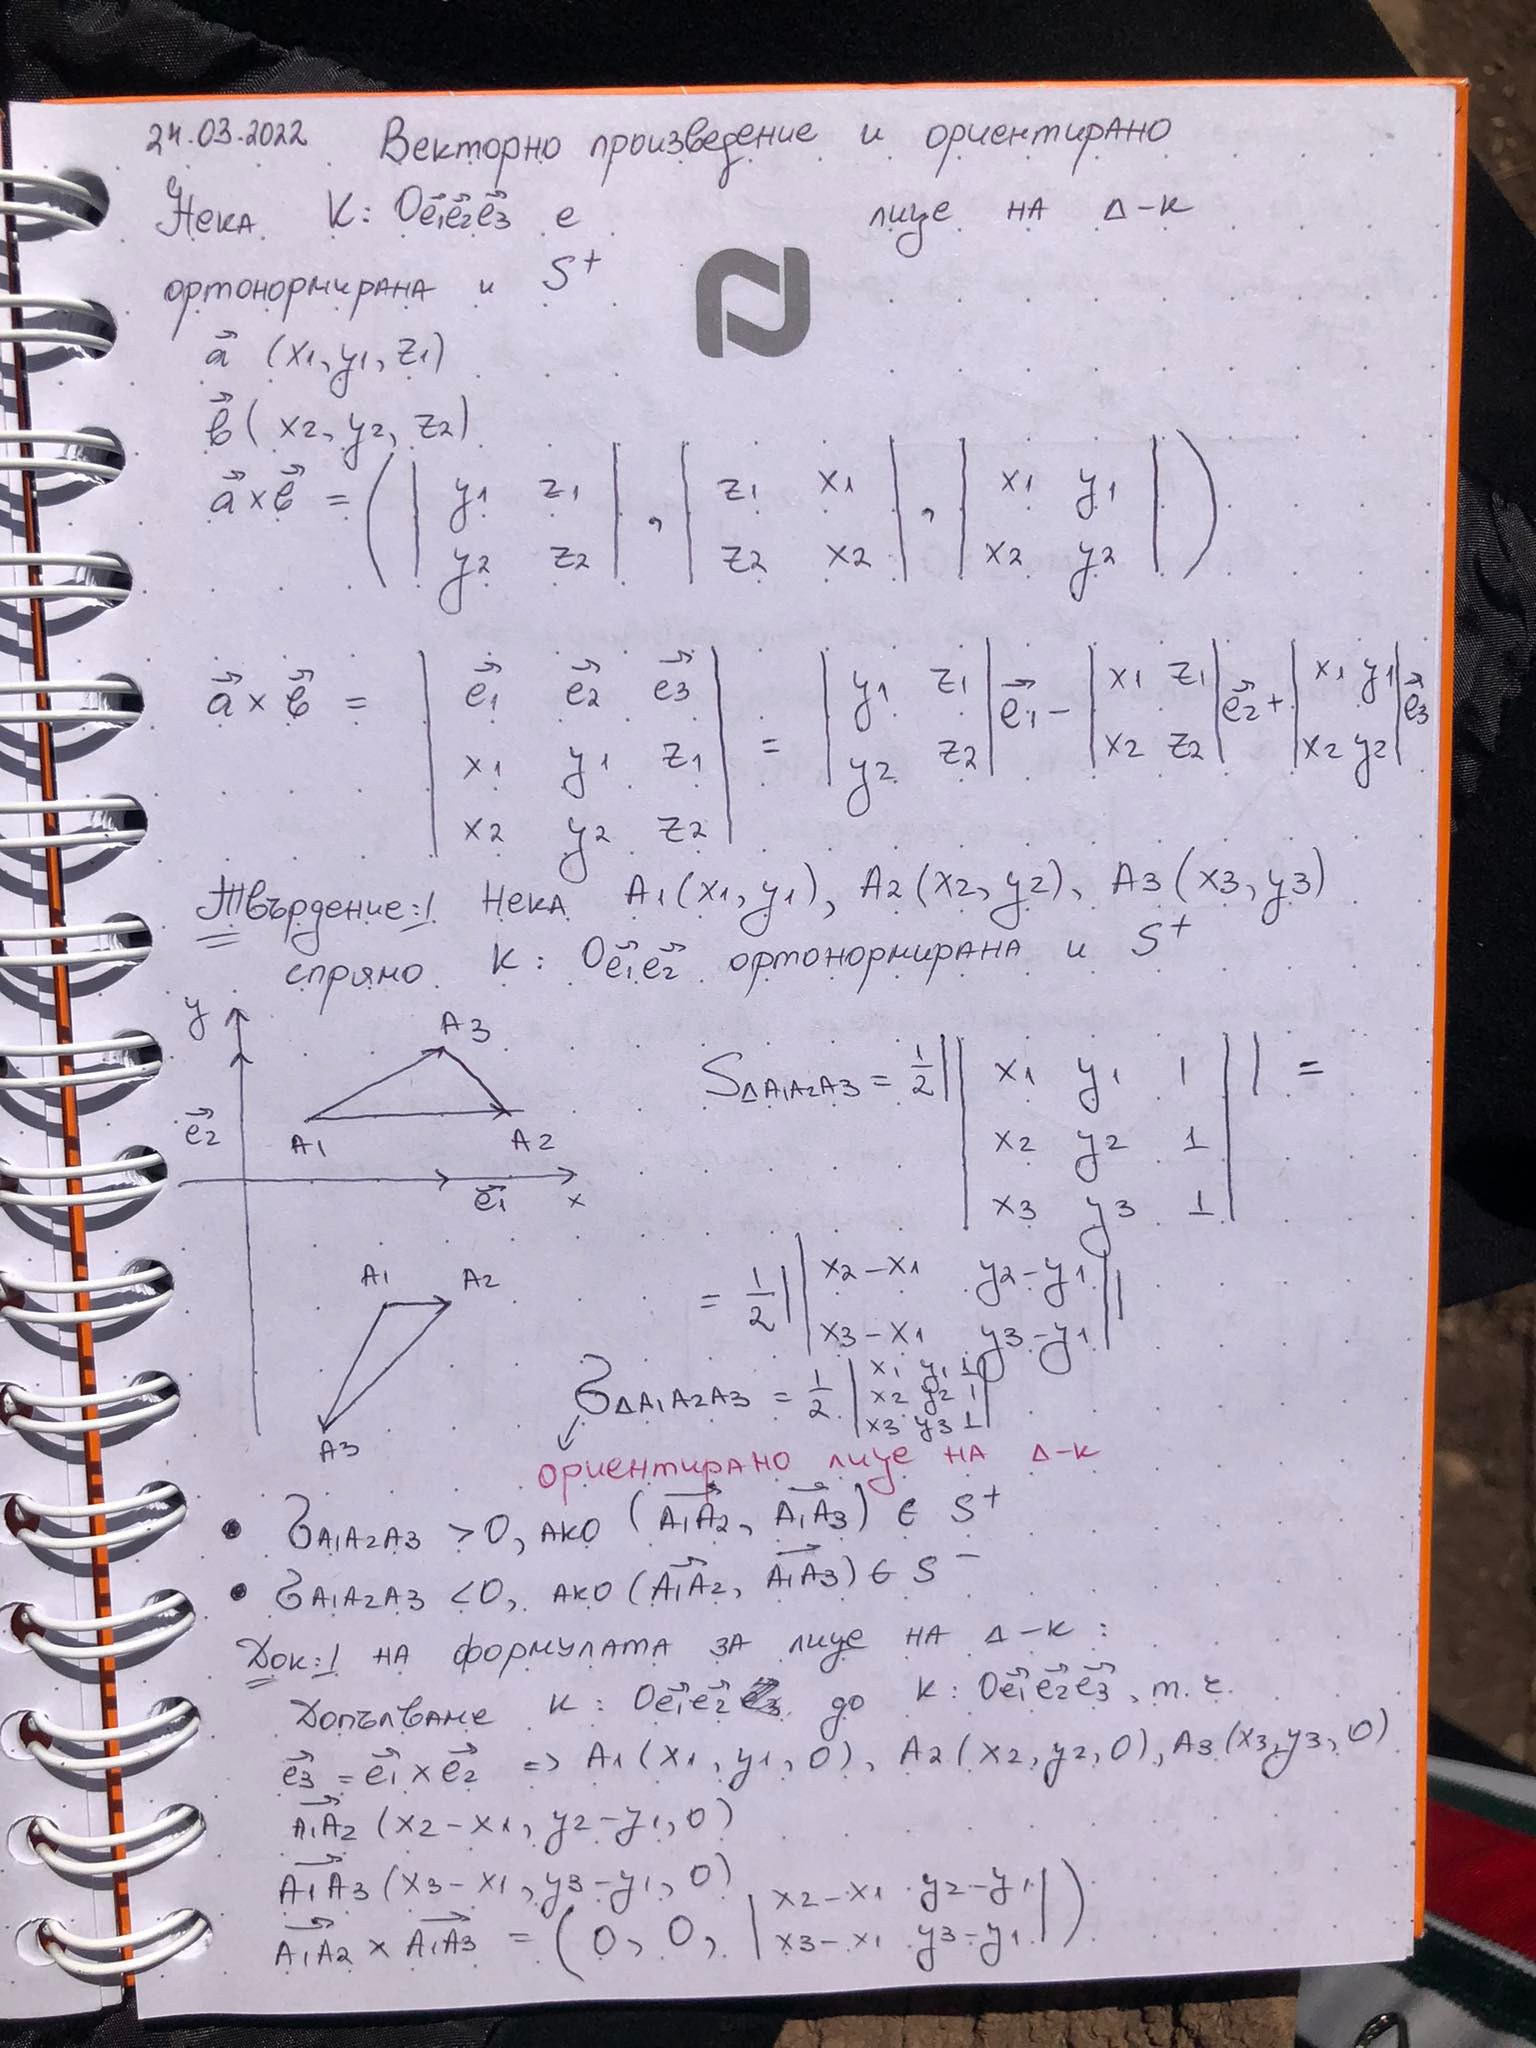 24.03.2022 Векторно произведение и ориентирано
лице на Δ-к
Нека K: Oe⃗1e⃗2e⃗3 е
ортонормирана и S⁺
a⃗ (x1, y1, z1)
b⃗ (x2, y2, z2)
a⃗ × b⃗ = (| y1 z1 |, | z1 x1 |, | x1 y1 |)
| y2 z2 | | z2 x2 | | x2 y2 |
a⃗ × b⃗ = | e⃗1 e⃗2 e⃗3 | = | y1 z1 | e⃗1 − | x1 z1 | e⃗2 + | x1 y1 | e⃗3
| x1 y1 z1 | | y2 z2 | | x2 z2 | | x2 y2 |
| x2 y2 z2 |
Твърдение:1 Нека A1(x1, y1), A2(x2, y2), A3(x3, y3)
спрямо K: Oe⃗1e⃗2 ортонормирана и S⁺
y
A3
e⃗2
A1 A2
e⃗1 x
SΔA1A2A3 = 1/2 || x1 y1 1 || =
| x2 y2 1 |
| x3 y3 1 |
A1 A2
A3
= 1/2 || x2−x1 y2−y1 ||
| x3−x1 y3−y1 |
σΔA1A2A3 = 1/2 | x1 y1 1 |
| x2 y2 1 |
| x3 y3 1 |
ориентирано лице на Δ-к
• σA1A2A3 > 0, ако (A1A2⃗, A1A3⃗) ∈ S⁺
• σA1A2A3 < 0, ако (A1A2⃗, A1A3⃗) ∈ S⁻
Док:1 на формулата за лице на Δ-к:
Допълваме K: Oe⃗1e⃗2 до K: Oe⃗1e⃗2e⃗3, т.ч.
e⃗3 = e⃗1 × e⃗2 => A1(x1, y1, 0), A2(x2, y2, 0), A3(x3, y3, 0)
A1A2⃗ (x2−x1, y2−y1, 0)
A1A3⃗ (x3−x1, y3−y1, 0)
A1A2⃗ × A1A3⃗ = (0, 0, | x2−x1 y2−y1 |)
| x3−x1 y3−y1 |